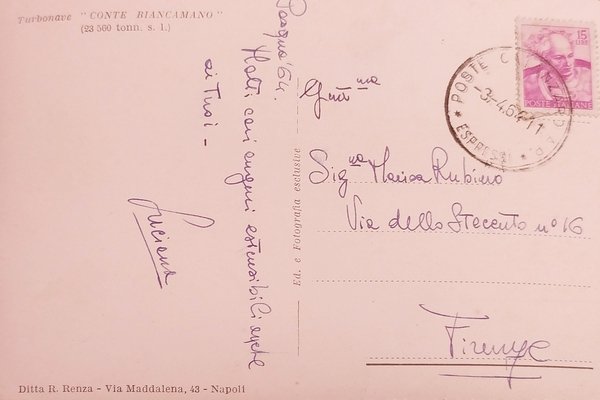 Turbonave "CONTE BIANCAMANO"
(23 560 tonn. s. l.)
Pasqua '64.
Molti cari auguri estensibili anche
ai Tuoi -
Luciana
Ed. e Fotografia esclusive
Ditta R. Renza - Via Maddalena, 43 - Napoli
15
LIRE
POSTE ITALIANE
POSTE
-3.-4.64 11
ESPRESSI
Gent ma
Sig.na Marisa Rubino
Via dello Steccuto n° 16
Firenze